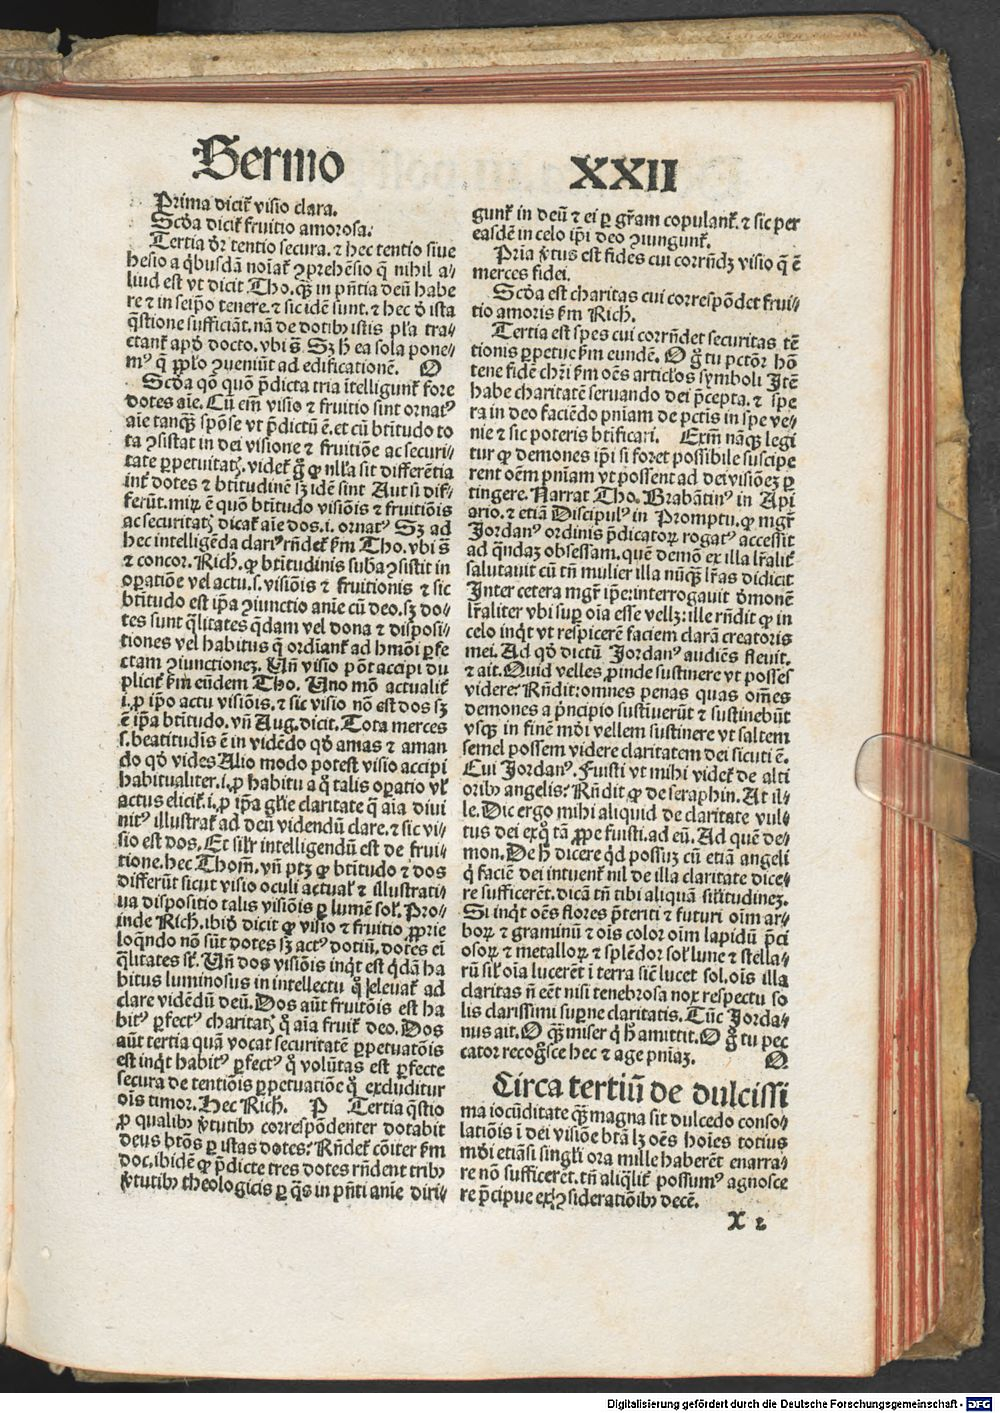 Sermo XXII
Prima dicit̃ visio clara.
Scd̃a dicit̃ fruitio amorosa.
Tertia dr̃ tentio secura. ⁊ hec tentio siue
hesio a qͥbusdã noĩat̃ ꝯprehẽsio q̃ nihil a⸗
liud est vt dicit Tho. qꝫ in pñtia deũ habe
re ⁊ in seip̃o tenere. ⁊ sic idẽ sunt. ⁊ hec d̃ ista
q̃stione sufficiãt. nã de dotibꝰ istis pl̃a tra⸗
ctant̃ apd̃ docto. vbi s̃. Sꝫ h̃ ea sola pone⸗
mꝰ q̃ pp̃lo ꝯueniũt ad edificationẽ. O
Scd̃a qõ quõ p̃dicta tria ĩtelligunt̃ fore
dotes aĩe. Cũ em̃ visio ⁊ fruitio sint ornatꝰ
aĩe tanqꝫ spõse vt p̃dictũ ẽ. et cũ btĩtudo to
ta ꝯsistat in dei visione ⁊ fruitiõe ac securi⸗
tate ꝑpetuitatꝭ. videt̃ g̃ ꝙ nl̃la sit differẽtia
int̃ dotes ⁊ btĩtudinẽ sꝫ idẽ sint Aut si dif⸗
ferũt. mirꝫ ẽ quõ btĩtudo visiõis ⁊ fruitiõis
ac securitatꝭ dicat̃ aĩe dos. i. ornatꝰ Sꝫ ad
hec intelligẽda clariꝰ rñdet̃ ẽm Tho. vbi s̃
⁊ concor. Rich. ꝙ btĩtudinis suba ꝯsistit in
oꝑatiõe vel actu. s. visiõis ⁊ fruitionis ⁊ sic
btĩtudo est ip̃a ꝯiunctio anĩe cũ deo. sꝫ do⸗
tes sunt q̃litates q̃dam vel dona ⁊ disposi⸗
tiones vel habitus q̃ ordĩant̃ ad hmõi ꝑfe
ctam ꝯiunctionez. Uñ visio põt accipi du
plicit̃ ẽm eũdem Tho. Uno mõ actualit̃
i. ꝑ ip̃o actu visiõis. ⁊ sic visio nõ est dos sꝫ
ẽ ip̃a btĩtudo. vñ Aug. dicit. Tota merces
s. beatitudĩs ẽ in vidẽdo qd̃ amas ⁊ aman
do qd̃ vides Alio modo potest visio accipi
habitualiter. i. ꝓ habitu a q̃ talis oꝑatio vl̃
actus elicit̃. i. ꝓ ip̃a gl̃ie claritate q̃ aĩa diui
nitꝰ illustrat̃ ad deũ videndũ clare. ⁊ sic vi⸗
sio est dos. Et sil̃r intelligendũ est de frui⸗
tione. hec Thom̃. vñ ptꝫ ꝙ btĩtudo ⁊ dos
differũt sicut visio oculi actual̃ ⁊ illustrati⸗
ua dispositio talis visiõis ꝑ lumẽ sol̃. Pro⸗
inde Rich. ibid̃ dicit ꝙ visio ⁊ fruitio ꝓprie
loq̃ndo nõ sũt dotes sꝫ actꝰ dotiũ. dotes eĩ
q̃litates st̃. Uñ dos visiõis inqͭ est q̃dã ha
bitus luminosus in intellectu q̃ eleuat̃ ad
clare vidẽdũ deũ. Dos aũt fruitiõis est ha
bitꝰ ꝑfectꝰ charitatꝭ q̃ aĩa fruit̃ deo. Dos
aũt tertia quã vocat securitatẽ ꝑpetuatõis
est inqͭ habitꝰ ꝑfectꝰ q̃ volũtas est ꝑfecte
secura de tentiõis ꝑpetuatiõe q̃ excluditur
oĩs timor. Hec Rich. P Tertia q̃stio
ꝓ qualibꝰ v̓tutibꝰ correspõdenter dotabit
deus btõs ꝑ istas dotes? Rñdet̃ cõiter ẽm
doc. ibidẽ ꝙ p̃dicte tres dotes rñdent tribꝰ
v̓tutibꝰ theologicis ꝑ q̃s in pñti anĩe diri⸗
gunt̃ in deũ ⁊ ei ꝑ gr̃am copulant̃. ⁊ sic per
easdẽ in celo ip̃i deo ꝯiungunt̃.
Prĩa v̓tus est fides cui corrñdꝫ visio q̃ ẽ
merces fidei.
Scd̃a est charitas cui correspõdet frui⸗
tio amoris ẽm Rich.
Tertia est spes cui corrñdet securitas tẽ
tionis ꝑpetue ẽm eundẽ. O g̃ tu pctõr hõ
tene fidẽ chr̃i ẽm oẽs articl̃os symboli Itẽ
habe charitatẽ seruando dei p̃cepta. ⁊ spe
ra in deo faciẽdo pniam de pctĩs in spe ve⸗
nie ⁊ sic poteris btĩficari. Exm̃ nãqꝫ legi
tur ꝙ demones ip̃i si foret possibile suscipe
rent oẽm pniam vt possent ad dei visiõeꝫ ꝑ
tingere. Narrat Tho. Brabãtinꝰ in Api
ario. ⁊ etiã Discipulꝰ in Promptu. ꝙ mg̃r
Jordanꝰ ordinis p̃dicatorꝝ rogatꝰ accessit
ad q̃ndaꝫ obsessam. quẽ demõ ex illa lr̃alit̃
salutauit cũ tñ mulier illa nũqꝫ lr̃as didicit
Inter cetera mg̃r ip̃e: interrogauit d̓monẽ
lr̃aliter vbi suꝑ oĩa esse vellꝫ: ille rñdit ꝙ in
celo inqͭ vt respicerẽ faciem clarã creatoris
mei. Ad qd̃ dictũ Jordanꝰ audiẽs fleuit.
⁊ ait. Quid velles ꝓinde sustinere vt posses
videre? Rñdit: omnes penas quas om̃es
demones a p̃ncipio sustĩuerũt ⁊ sustinebũt
vsqꝫ in finẽ mõi vellem sustinere vt saltem
semel possem videre claritatem dei sicuti ẽ.
Cui Jordanꝰ. Fuisti vt mihi videt̃ de alti
oribꝰ angelis? Rñdit ꝙ de seraphin. At il⸗
le. Dic ergo mihi aliquid de claritate vul⸗
tus dei exq̃ tã ꝓpe fuisti. ad eũ. Ad quẽ de⸗
mon. De h̃ dicere qͥd possuꝫ cũ etiã angeli
qͥ faciẽ dei intuent̃ nil de illa claritate dice⸗
re sufficerẽt. dicã tñ tibi aliquã sil̃itudineꝫ.
Si inqͭ oẽs flores p̃teriti ⁊ futuri oĩm ar⸗
borꝝ ⁊ graminũ ⁊ oĩs color oĩm lapidũ p̃ci
osorꝝ ⁊ metallorꝝ ⁊ splẽdor sol̃ lune ⁊ stella⸗
rũ sil̃ oĩa lucerẽt ĩ terra siẽ lucet sol. oĩs illa
claritas ñ eẽt nisi tenebrosa nox respectu so
lis clarissimi suꝑne claritatis. Tũc Jorda⸗
nus ait. O qꝫ miser qͥ h̃ amittit. O g̃ tu pec
cator recog̃sce hec ⁊ age pniaꝫ. Q
Circa tertiũ de dulcissi
ma iocũditate qꝫ magna sit dulcedo conso⸗
latiõis ĩ dei visiõe btã lꝫ oẽs hoĩes totius
mõi etiãsi singl̃i ora mille haberẽt enarra⸗
re nõ sufficerẽt. tñ aliq̃lit̃ possumꝰ agnosce
re p̃cipue ex ꝯsideratiõibꝰ decẽ.
X 2
Digitalisierung gefördert durch die Deutsche Forschungsgemeinschaft - DFG